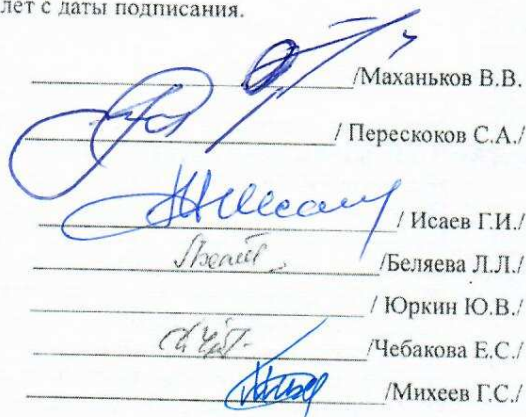 лет с даты подписания.
/Маханьков В.В.
/ Перескоков С.А./
/ Исаев Г.И./
/Беляева Л.Л./
/ Юркин Ю.В./
/Чебакова Е.С./
/Михеев Г.С./